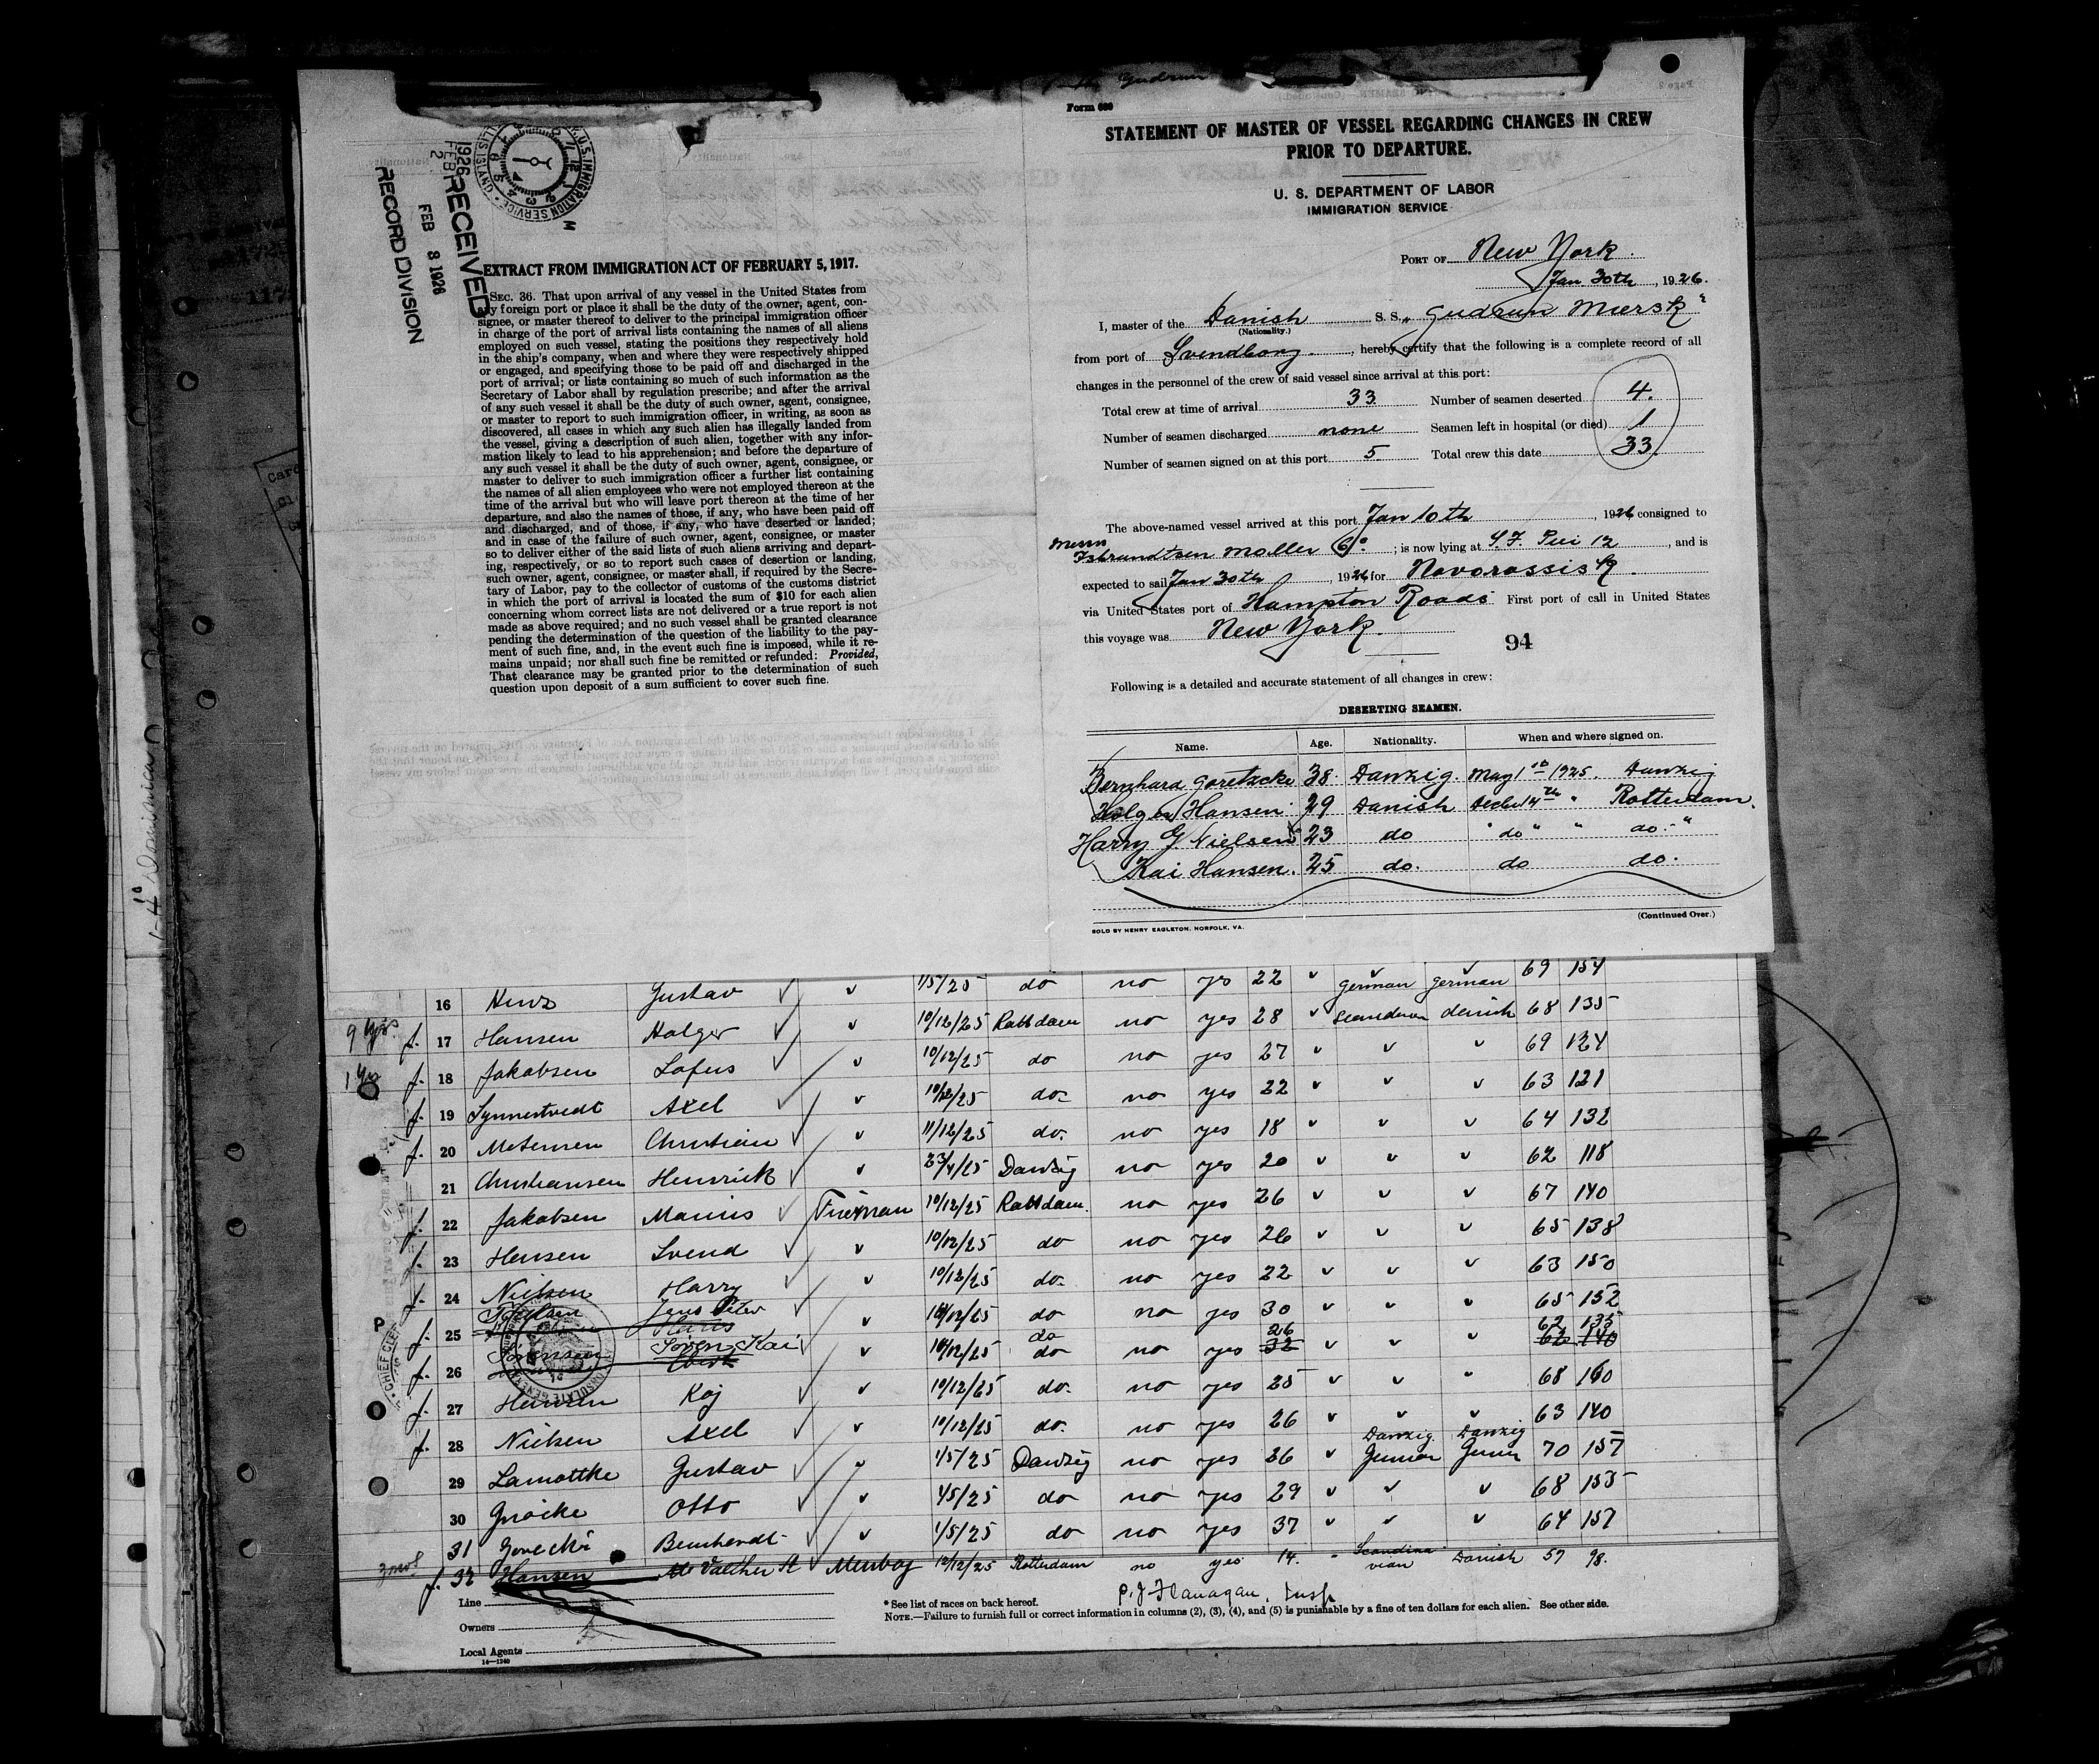 Form 680
STATEMENT OF MASTER OF VESSEL REGARDING CHANGES IN CREW
PRIOR TO DEPARTURE.
U. S. DEPARTMENT OF LABOR
IMMIGRATION SERVICE
U.S. IMMIGRATION SERVICE
ELLIS ISLAND
1926 FEB 2
RECEIVED
FEB 3 1926
RECORD DIVISION
EXTRACT FROM IMMIGRATION ACT OF FEBRUARY 5, 1917.
SEC. 36. That upon arrival of any vessel in the United States from
any foreign port or place it shall be the duty of the owner, agent, con-
signee, or master thereof to deliver to the principal immigration officer
in charge of the port of arrival lists containing the names of all aliens
employed on such vessel, stating the positions they respectively hold
in the ship's company, when and where they were respectively shipped
or engaged, and specifying those to be paid off and discharged in the
port of arrival; or lists containing so much of such information as the
Secretary of Labor shall by regulation prescribe; and after the arrival
of any such vessel it shall be the duty of such owner, agent, consignee,
or master to report to such immigration officer, in writing, as soon as
discovered, all cases in which any such alien has illegally landed from
the vessel, giving a description of such alien, together with any infor-
mation likely to lead to his apprehension; and before the departure of
any such vessel it shall be the duty of such owner, agent, consignee, or
master to deliver to such immigration officer a further list containing
the names of all alien employees who were not employed thereon at the
time of the arrival but who will leave port thereon at the time of her
departure, and also the names of those, if any, who have been paid off
and discharged, and of those, if any, who have deserted or landed;
and in case of the failure of such owner, agent, consignee, or master
so to deliver either of the said lists of such aliens arriving and depart-
ing, respectively, or so to report such cases of desertion or landing,
such owner, agent, consignee, or master shall, if required by the Secre-
tary of Labor, pay to the collector of customs of the customs district
in which the port of arrival is located the sum of $10 for each alien
concerning whom correct lists are not delivered or a true report is not
made as above required; and no such vessel shall be granted clearance
pending the determination of the question of the liability to the pay-
ment of such fine, and, in the event such fine is imposed, while it re-
mains unpaid; nor shall such fine be remitted or refunded: Provided,
That clearance may be granted prior to the determination of such
question upon deposit of a sum sufficient to cover such fine.
PORT OF New York.
Jan 30th, 1926.
I, master of the Danish S. S. "Gudrun Mærsk"
(Nationality.)
from port of Svendborg, hereby certify that the following is a complete record of all
changes in the personnel of the crew of said vessel since arrival at this port:
Total crew at time of arrival 33 Number of seamen deserted 4.
Number of seamen discharged none Seamen left in hospital (or died) 1
Number of seamen signed on at this port 5. Total crew this date 33.
The above-named vessel arrived at this port Jan 10th, 1926 consigned to
Messrs
Isbrandtsen Moller Co; is now lying at Pier 12, and is
expected to sail Jan 30th, 1926 for Novorossisk.
via United States port of Hampton Roads First port of call in United States
this voyage was New York.
94
Following is a detailed and accurate statement of all changes in crew:
DESERTING SEAMEN.
Name. Age. Nationality. When and where signed on.
Bernhard Goretzcke 38. Danzig. May 1st 1925. Danzig
Holger Hansen 29 Danish Decbr 14th " Rotterdam.
Harry G. Nielsen 23 do " do " " do. "
Kai Hansen. 25 do. do do.
(Continued Over.)
SOLD BY HENRY EAGLETON, NORFOLK, VA.
16 Gustav 1/5/25 do no yes 22 german german 69 154
9 yrs. 17 Hansen Holger 10/12/25 Rottdam no yes 28 danish 68 135
1 yr 18 Jakobsen 10/12/25 do no yes 27 69 124
19 Synnestvedt Axel 10/12/25 do no yes 22 63 121
20 Christian 11/12/25 do. no yes 18 64 132
21 Christiansen Henrick 23/4/25 Danzig no yes 20 62 118
22 Jakobsen Marius Fireman 10/12/25 Rottdam. no yes 26 67 140
23 Hansen Svend 10/12/25 do no yes 26 65 138
24 Nielsen Harry 10/12/25 do. no yes 22 63 150
25 Jens Peter 10/12/25 do no yes 30 65 152
26 Sörensen Sören Kai 10/12/25 do no yes 26 62 135
27 Hansen Kaj 10/12/25 do. no yes 25 68 160
28 Nielsen Axel 10/12/25 do. no yes 26 63 140
Danzig Danzig
29 Lamottke Gustav 1/5/25 Danzig no yes 26 German German 70 157
30 Otto 1/5/25 do no yes 29 68 155
31 Gorecki Bernhardt 1/5/25 do no yes 37 64 157
32 Hansen Valther A Messboy 12/12/25 Rotterdam no yes 14. Scandinavian Danish 57 98.
P. J. Flanagan, Insp
Line
Owners
Local Agents
14—1240
* See list of races on back hereof.
NOTE.—Failure to furnish full or correct information in columns (2), (3), (4), and (5) is punishable by a fine of ten dollars for each alien. See other side.